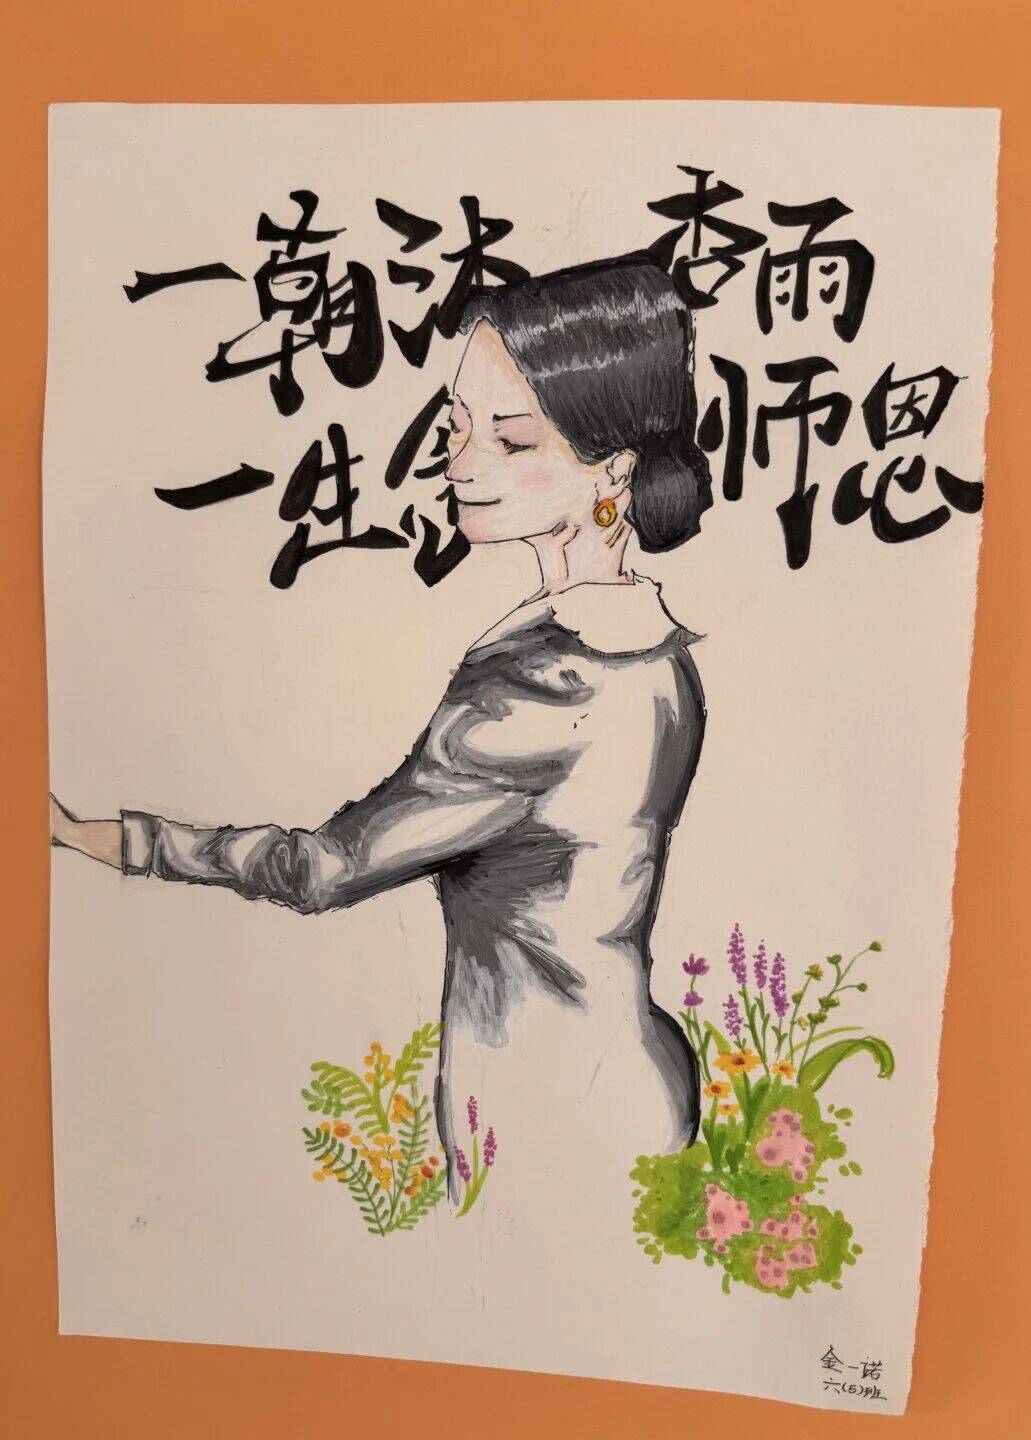 一朝沐杏雨
一生念师恩
金一诺
六(5)班